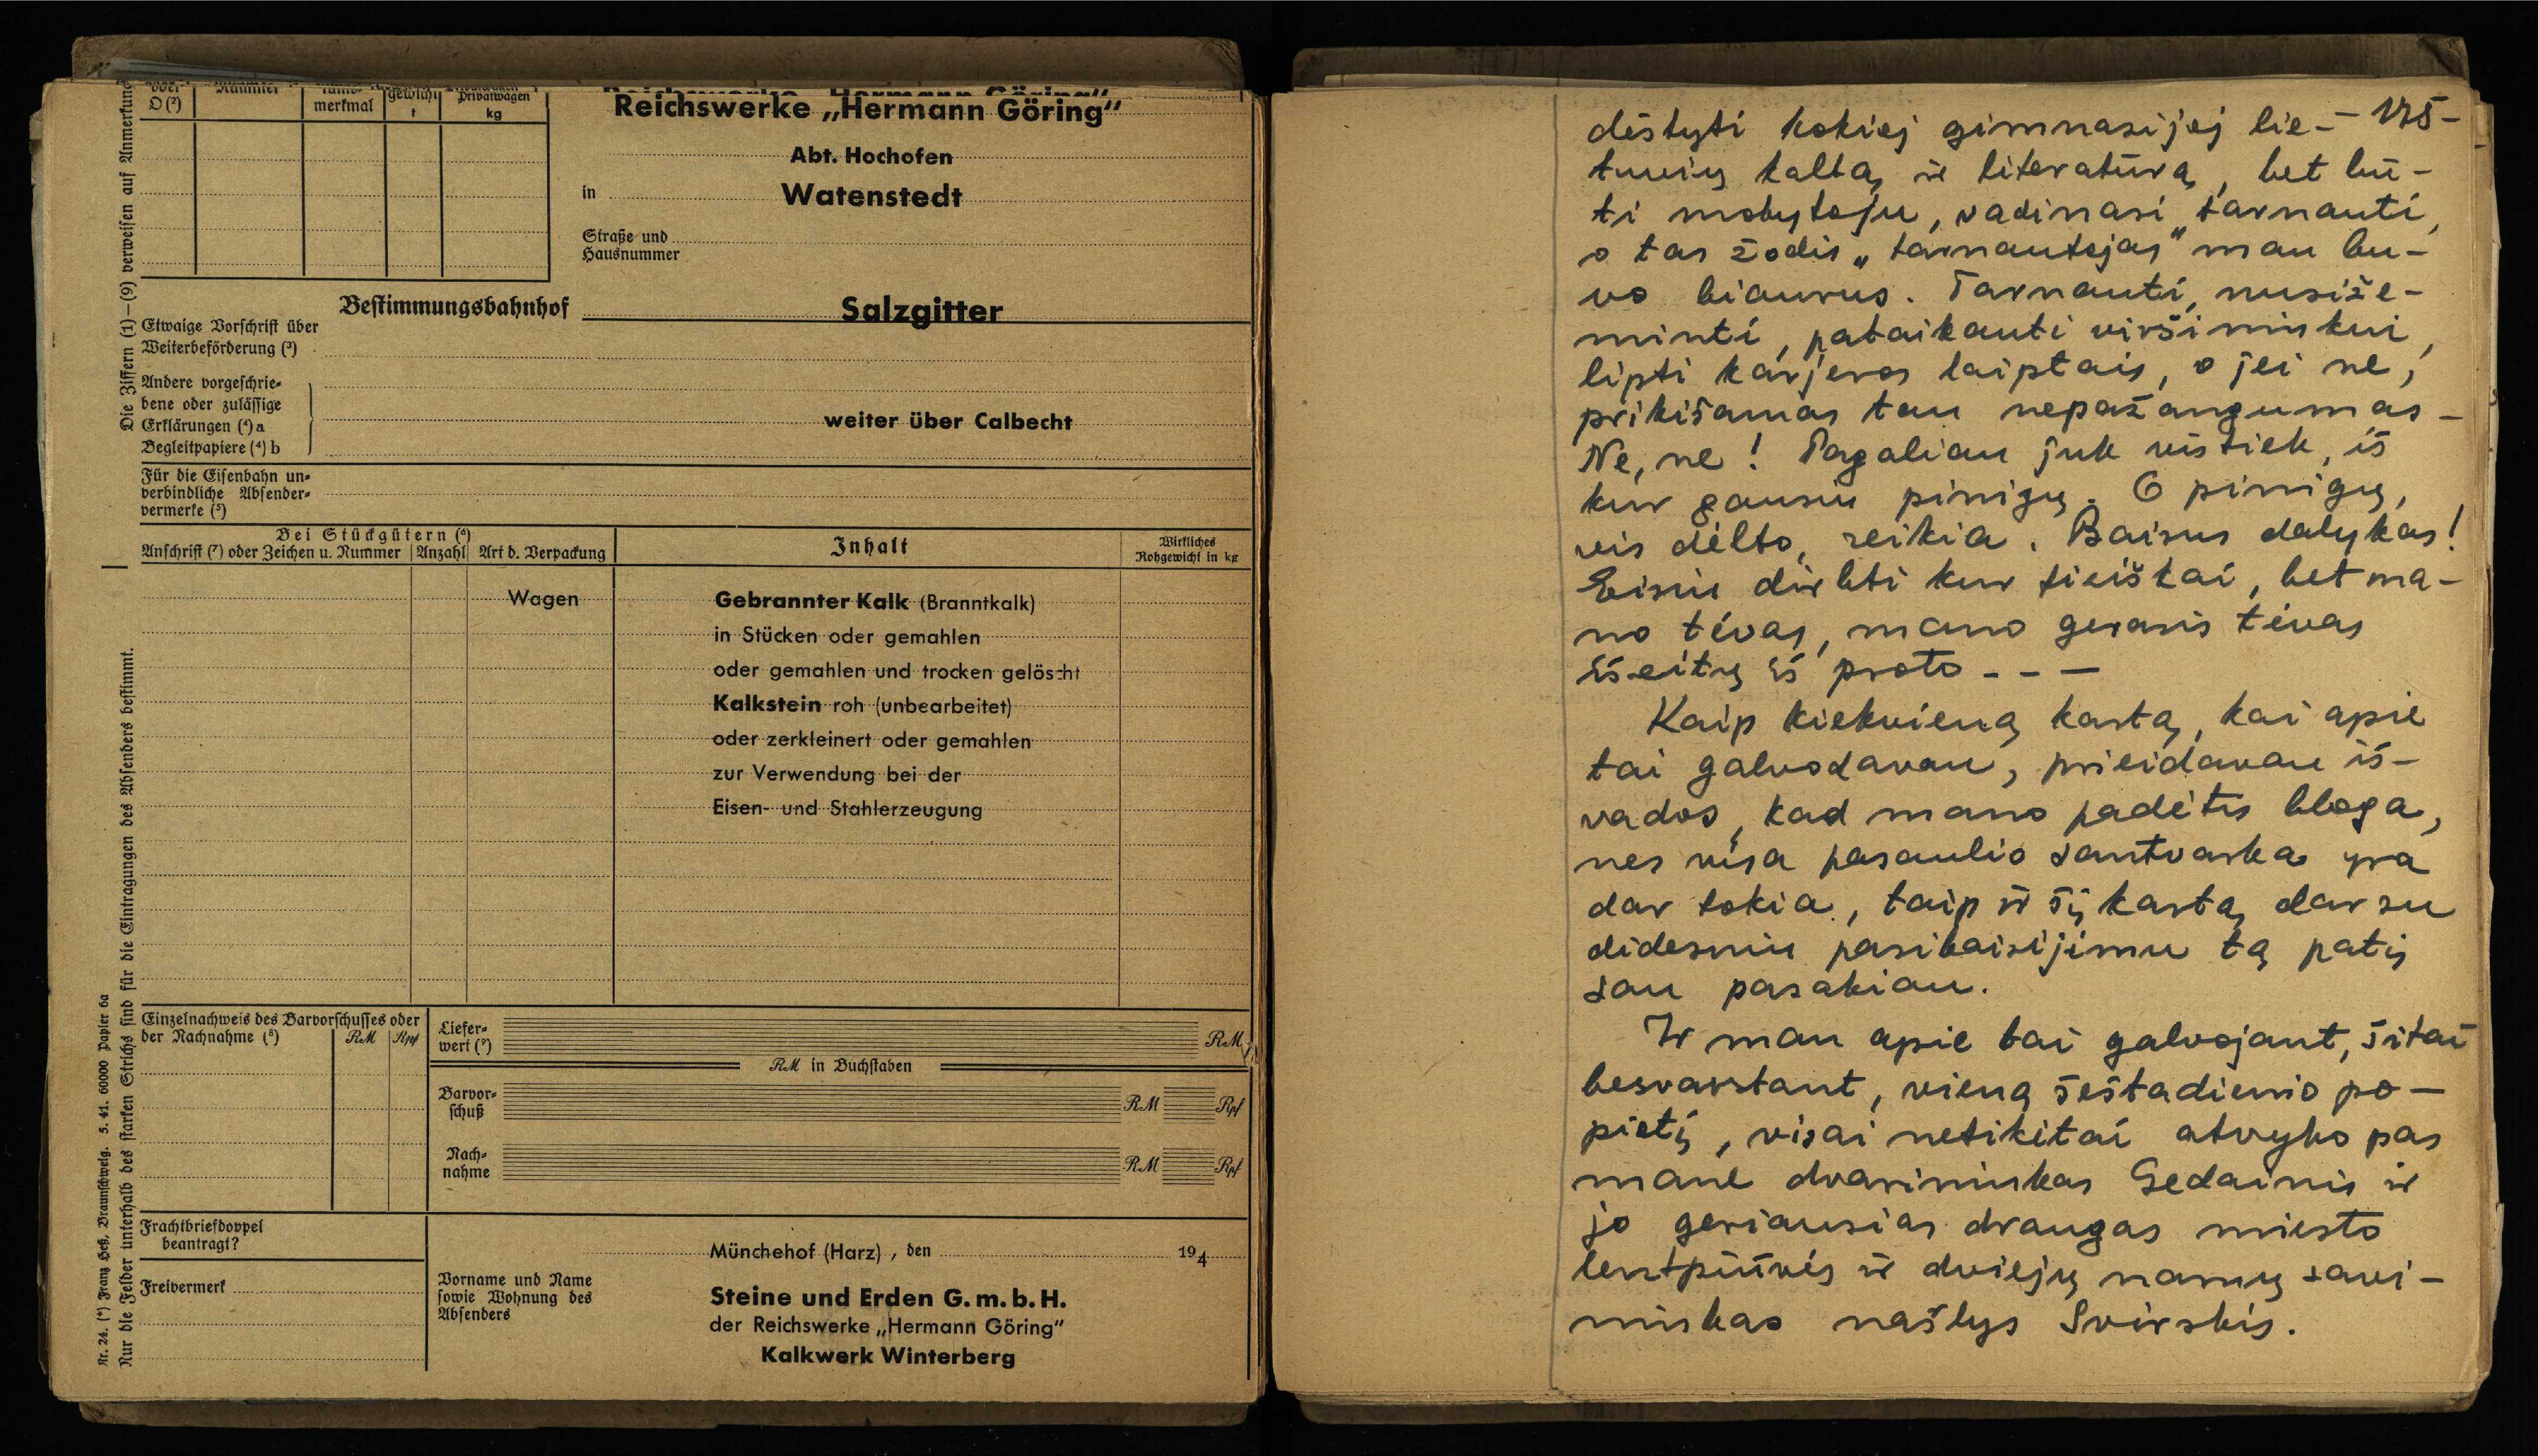 oder O (²)
Nummer
merkmal
gewicht t
Privatwagen kg
Reichswerke „Hermann Göring“
Abt. Hochofen
in Watenstedt
Straße und
Hausnummer
Bestimmungsbahnhof Salzgitter
Etwaige Vorschrift über
Weiterbeförderung (³)
Andere vorgeschrie-
bene oder zulässige
Erklärungen (⁴) a
Begleitpapiere (⁴) b
weiter über Calbecht
Für die Eisenbahn un-
verbindliche Absender-
vermerke (⁵)
Bei Stückgütern (⁶)
Anschrift (⁷) oder Zeichen u. Nummer Anzahl Art d. Verpackung
Inhalt
Wirkliches
Rohgewicht in kg
Wagen Gebrannter Kalk (Branntkalk)
in Stücken oder gemahlen
oder gemahlen und trocken gelöscht
Kalkstein roh (unbearbeitet)
oder zerkleinert oder gemahlen
zur Verwendung bei der
Eisen- und Stahlerzeugung
Einzelnachweis des Barvorschusses oder
der Nachnahme (⁸) RM Rpf
Liefer-
wert (⁹) RM
RM in Buchstaben
Barvor-
schuß RM Rpf
Nach-
nahme RM Rpf
Frachtbriefdoppel
beantragt?
Freivermerk
Münchehof (Harz), den 194
Vorname und Name
sowie Wohnung des
Absenders
Steine und Erden G. m. b. H.
der Reichswerke „Hermann Göring“
Kalkwerk Winterberg
Die Ziffern (1)—(9) verweisen auf Anmerkung
Nur die Felder unterhalb des starken Strichs sind für die Eintragungen des Absenders bestimmt.
Nr. 24. (*) Franz Heß, Braunschweig. 5. 41. 60000 Papier 6a
- 175 -
dėstyti kokioj gimnazijoj lie-
tuvių kalbą ir literatūrą, bet bū-
ti mokytoju, vadinasi tarnauti,
o tas žodis „tarnautojas“ man bu-
vo biaurus. Tarnauti, nusiže-
minti, pataikauti viršininkui,
lipti karjeros laiptais, o jei ne,
prikišamas tau nepažangumas -
Ne, ne! Pagaliau juk vistiek, iš
kur gausiu pinigų. O pinigų,
vis dėlto, reikia. Baisus dalykas!
Eisiu dirbti kur fiziškai, bet ma-
no tėvas, mano gerasis tėvas
išeitų iš proto - - -
Kaip kiekvieną kartą, kai apie
tai galvodavau, prieidavau iš-
vados, kad mano padėtis bloga,
nes visa pasaulio santvarka yra
dar tokia, taip ir šį kartą dar su
didesniu pasibaisijimu tą patį
sau pasakiau.
Ir man apie tai galvojant, šitai
besvarstant, vieną šeštadienio po-
pietį, visai netikėtai atvyko pas
mane dvarininkas Gedainis ir
jo geriausias draugas miesto
lentpiūvės ir dviejų namų savi-
ninkas našlys Svirskis.